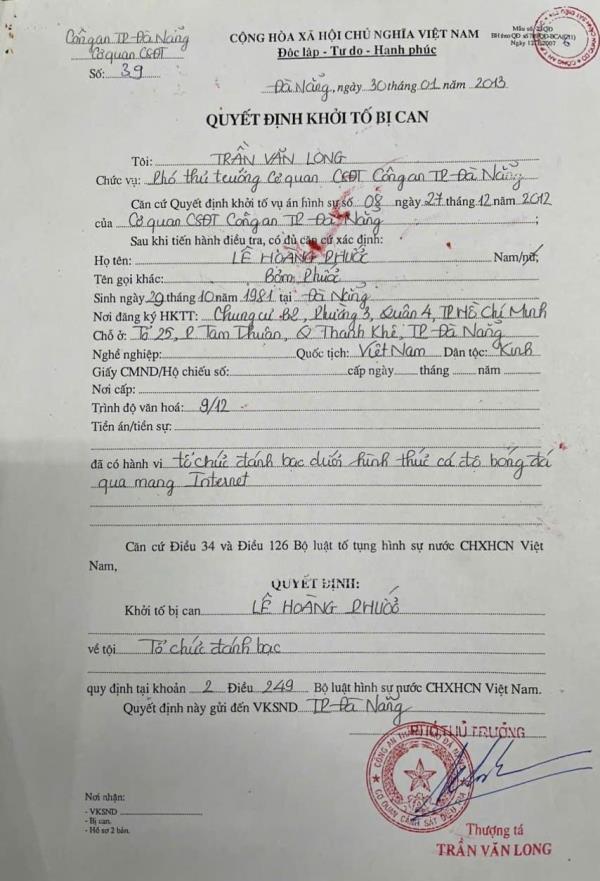 Công an TP-Đà Nẵng
Cơ quan CSĐT
Số: 39
CỘNG HÒA XÃ HỘI CHỦ NGHĨA VIỆT NAM
Độc lập - Tự do - Hạnh phúc
Đà Nẵng, ngày 30 tháng 01 năm 2013
QUYẾT ĐỊNH KHỞI TỐ BỊ CAN
Tôi: TRẦN VĂN LONG
Chức vụ: Phó thủ trưởng Cơ quan CSĐT Công an TP-Đà Nẵng
Căn cứ Quyết định khởi tố vụ án hình sự số 08 ngày 27 tháng 12 năm 2012
của Cơ quan CSĐT Công an TP-Đà Nẵng ;
Sau khi tiến hành điều tra, có đủ căn cứ xác định:
Họ tên: LÊ HOÀNG PHƯỚC Nam/nữ
Tên gọi khác: Bờm, Phước
Sinh ngày 29 tháng 10 năm 1981 tại Đà Nẵng
Nơi đăng ký HKTT: Chung cư B2, Phường 3, Quận 4, TP Hồ Chí Minh
Chỗ ở: Tổ 25, P. Tam Thuận, Q Thanh Khê, TP-Đà Nẵng
Nghề nghiệp: Quốc tịch: Việt Nam Dân tộc: Kinh
Giấy CMND/Hộ chiếu số: cấp ngày tháng năm
Nơi cấp:
Trình độ văn hoá: 9/12
Tiền án/tiền sự:
đã có hành vi tổ chức đánh bạc dưới hình thức cá độ bóng đá
qua mạng Internet
Căn cứ Điều 34 và Điều 126 Bộ luật tố tụng hình sự nước CHXHCN Việt
Nam,
QUYẾT ĐỊNH:
Khởi tố bị can LÊ HOÀNG PHƯỚC
về tội Tổ chức đánh bạc
quy định tại khoản 2 Điều 249 Bộ luật hình sự nước CHXHCN Việt Nam.
Quyết định này gửi đến VKSND TP-Đà Nẵng
PHÓ THỦ TRƯỞNG
Nơi nhận:
- VKSND
- Bị can.
- Hồ sơ 2 bản.
Thượng tá
TRẦN VĂN LONG